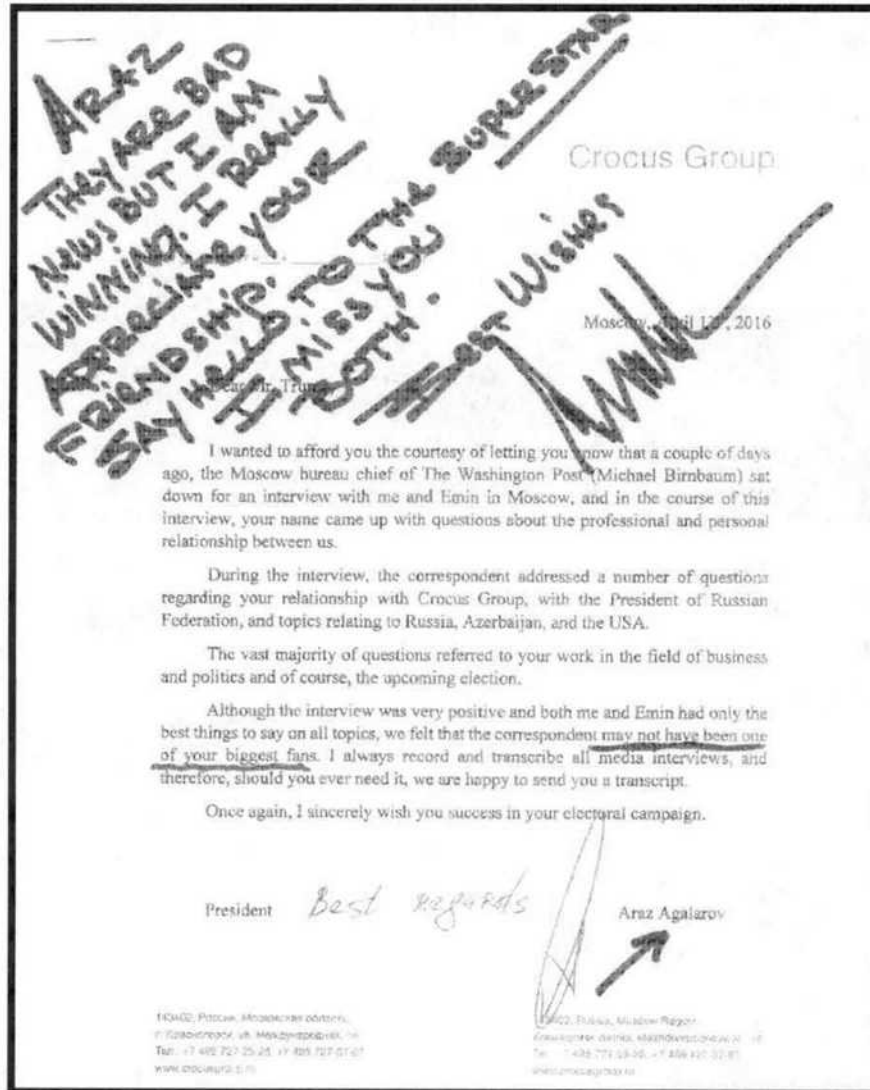 ARAZ
THEY ARE BAD
NEWS BUT I AM
WINNING. I REALLY
APPRECIATE YOUR
FRIENDSHIP.
SAY HELLO TO THE SUPER STAR
I MISS YOU
BOTH.
Best Wishes
Crocus Group
Moscow, April 2016
Dear Mr. Trump
I wanted to afford you the courtesy of letting you know that a couple of days
ago, the Moscow bureau chief of The Washington Post (Michael Birnbaum) sat
down for an interview with me and Emin in Moscow, and in the course of this
interview, your name came up with questions about the professional and personal
relationship between us.
During the interview, the correspondent addressed a number of questions
regarding your relationship with Crocus Group, with the President of Russian
Federation, and topics relating to Russia, Azerbaijan, and the USA.
The vast majority of questions referred to your work in the field of business
and politics and of course, the upcoming election.
Although the interview was very positive and both me and Emin had only the
best things to say on all topics, we felt that the correspondent may not have been one
of your biggest fans. I always record and transcribe all media interviews, and
therefore, should you ever need it, we are happy to send you a transcript.
Once again, I sincerely wish you success in your electoral campaign.
President Best regards Araz Agalarov
143402, Россия, Московская область,
г. Красногорск, ул. Международная,
Тел.: +7 495 727
Russia, Moscow Region,